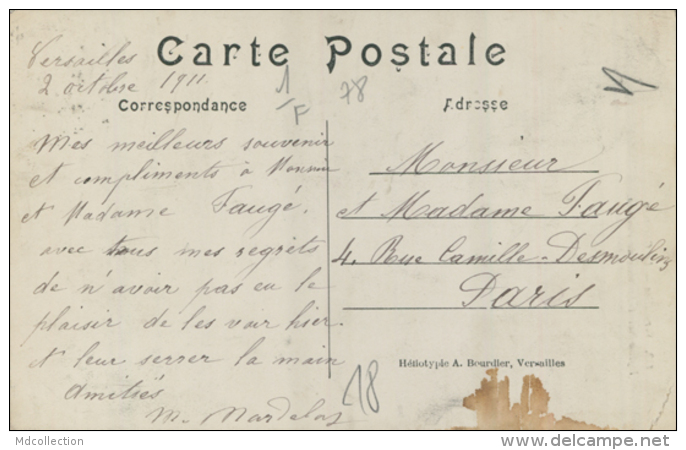 Versailles
2 octobre 1911
Carte Postale
1
F
78
Correspondance
Adresse
Mes meilleurs souvenir
et compliments à Monsieur
et Madame Faugé.
avec tous mes regrets
de n'avoir pas eu le
plaisir de les voir hier
et leur serrer la main
Amitiés
M.
Monsieur
et Madame Faugé
4. Rue Camille-Desmoulins
Paris
Héliotypie A. Bourdier, Versailles
18
Mdcollection
www.delcampe.net